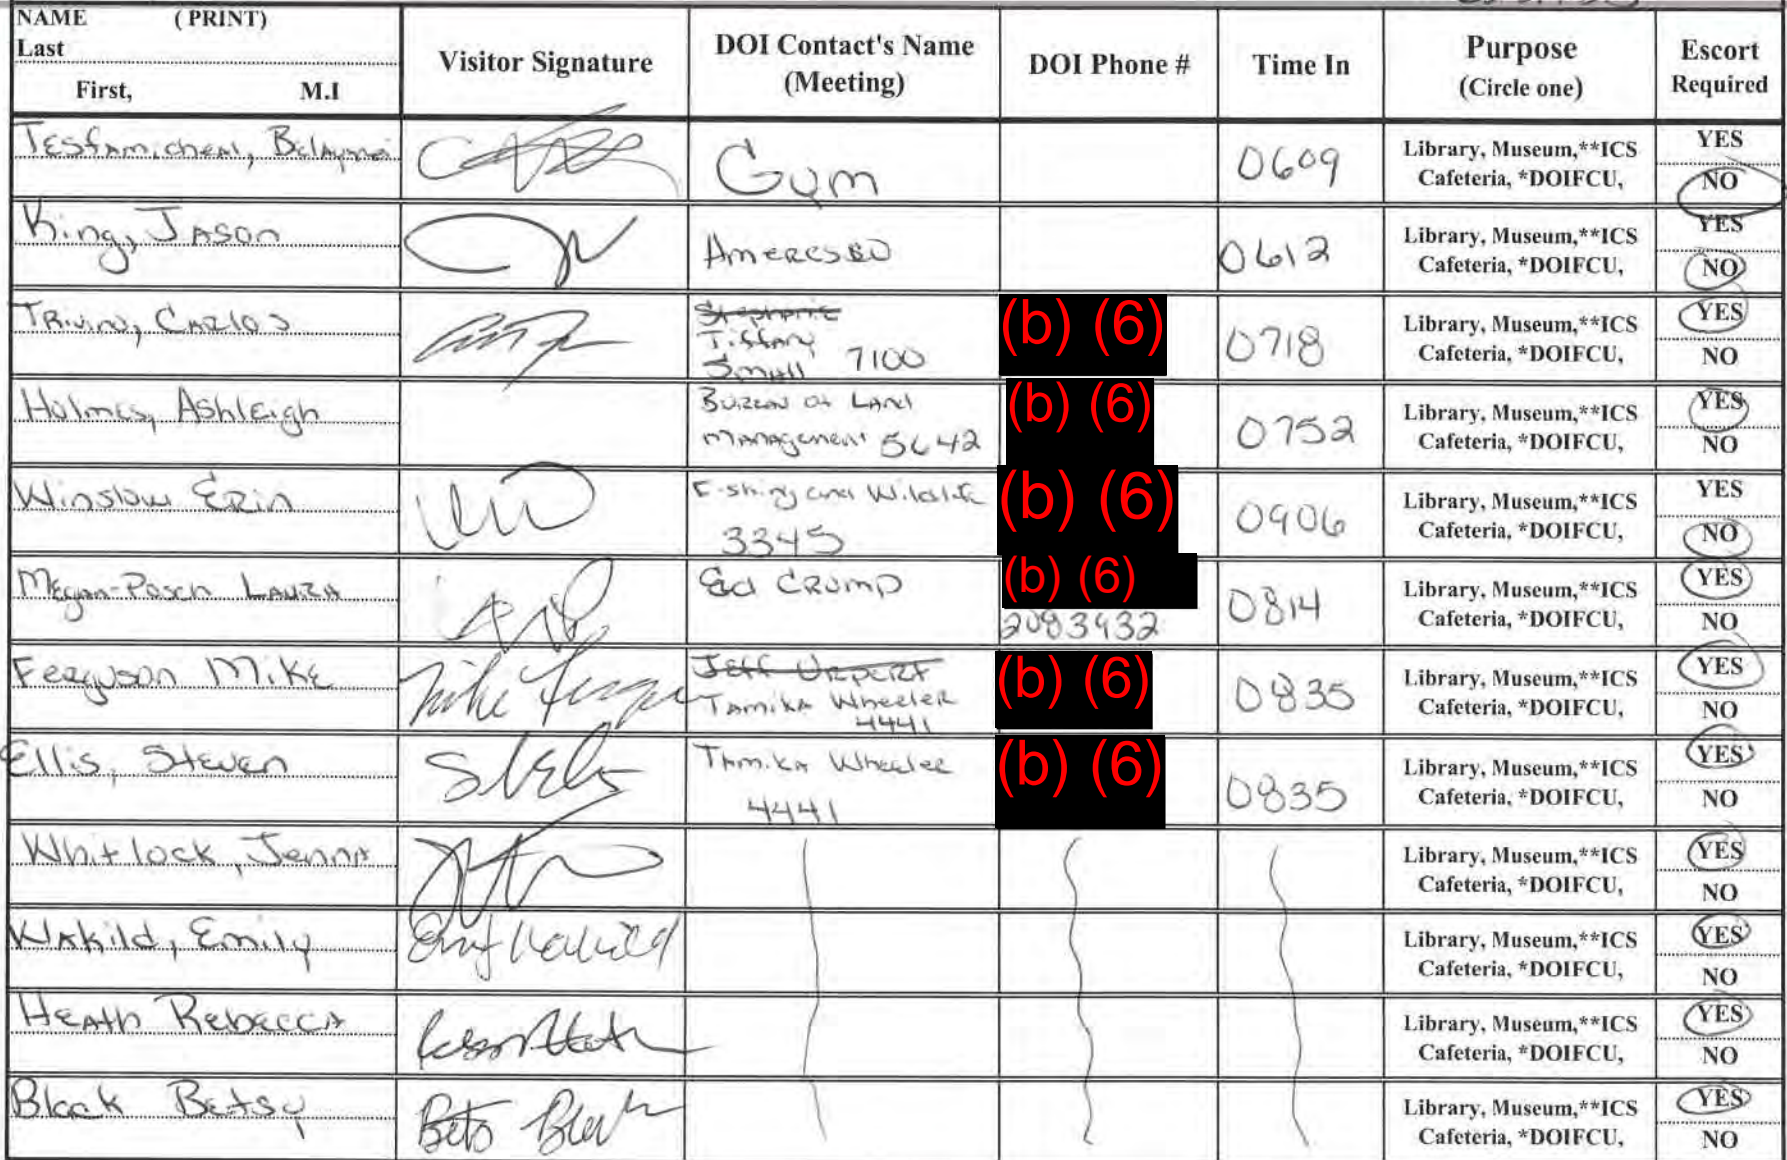 NAME (PRINT)
Last
First, M.I
Visitor Signature
DOI Contact's Name
(Meeting)
DOI Phone #
Time In
Purpose
(Circle one)
Escort
Required
Tesfamicheal,
Gym
0609
Library, Museum,**ICS
Cafeteria, *DOIFCU,
YES
NO
King, Jason
0612
Library, Museum,**ICS
Cafeteria, *DOIFCU,
YES
NO
Trivino, Carlos
Stephanie
Tiffany
Small 7100
(b) (6)
0718
Library, Museum,**ICS
Cafeteria, *DOIFCU,
YES
NO
Holmes, Ashleigh
Bureau of Land
Management 5642
(b) (6)
0752
Library, Museum,**ICS
Cafeteria, *DOIFCU,
YES
NO
Winslow Erin
Fishing and Wildlife
3345
(b) (6)
0906
Library, Museum,**ICS
Cafeteria, *DOIFCU,
YES
NO
Megan-Posch Laura
Ed Crump
(b) (6)
2083932
0814
Library, Museum,**ICS
Cafeteria, *DOIFCU,
YES
NO
Ferguson Mike
Mike
Jeff
Tamika Wheeler
4441
(b) (6)
0835
Library, Museum,**ICS
Cafeteria, *DOIFCU,
YES
NO
Ellis, Steven
Tamika Wheeler
4441
(b) (6)
0835
Library, Museum,**ICS
Cafeteria, *DOIFCU,
YES
NO
Whitlock, Jenna
Library, Museum,**ICS
Cafeteria, *DOIFCU,
YES
NO
Wakild, Emily
Emily Wakild
Library, Museum,**ICS
Cafeteria, *DOIFCU,
YES
NO
Heath Rebecca
Library, Museum,**ICS
Cafeteria, *DOIFCU,
YES
NO
Black Betsy
Library, Museum,**ICS
Cafeteria, *DOIFCU,
YES
NO